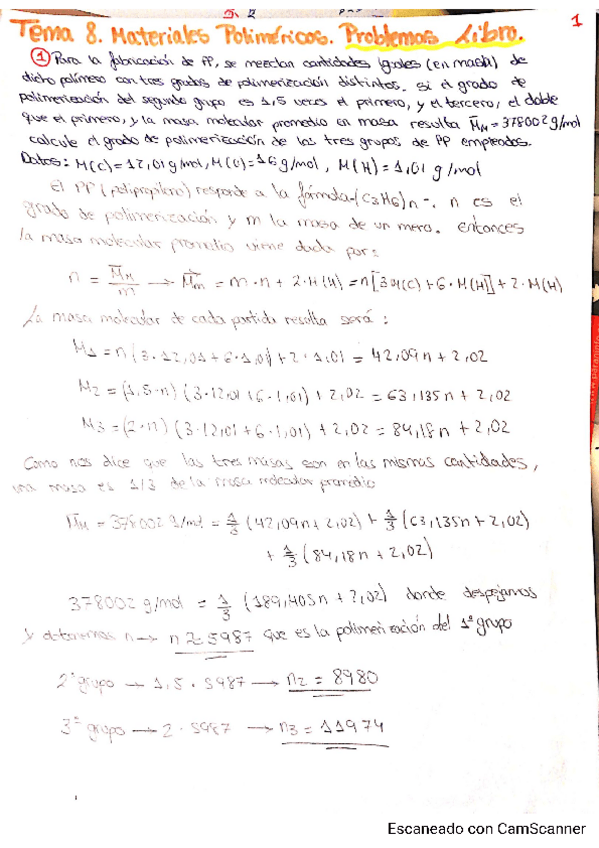 1
Tema 8. Materiales Poliméricos. Problemas Libro.
① Para la fabricación de PP, se mezclan cantidades iguales (en masa) de
dicho polímero con tres grados de polimerización distintos. Si el grado de
polimerización del segundo grupo es 1,5 veces el primero, y el tercero, el doble
que el primero, y la masa molecular promedio en masa resulta M̄м = 378002 g/mol
calcule el grado de polimerización de los tres grupos de PP empleados.
Datos: M(C)=12,01 g/mol, M(O)=16 g/mol, M(H)=1,01 g/mol
El PP (polipropileno) responde a la fórmula -(C3H6)n-. n es el
grado de polimerización y m la masa de un mero. entonces
la masa molecular promedio viene dada por:
n = M̄м/m → M̄m = m·n + 2·M(H) = n[3M(C) + 6·M(H)] + 2·M(H)
La masa molecular de cada partida resulta será:
M1 = n(3·12,01+6·1,01)+2·1,01 = 42,09n + 2,02
M2 = (1,5·n) (3·12,01+6·1,01) + 2,02 = 63,135n + 2,02
M3 = (2·n) (3·12,01+6·1,01) + 2,02 = 84,18n + 2,02
Como nos dice que las tres masas son en las mismas cantidades,
una masa es 1/3 de la masa molecular promedio
M̄м = 378002 g/mol = 1/3 (42,09n+2,02) + 1/3 (63,135n+2,02)
+ 1/3 (84,18n + 2,02)
378002 g/mol = 1/3 (189,405n + 2,02) donde despejamos
y obtenemos n → n ≃ 5987 que es la polimerización del 1º grupo
2º grupo → 1,5 · 5987 → n2 = 8980
3º grupo → 2 · 5987 → n3 = 11974
Escaneado con CamScanner